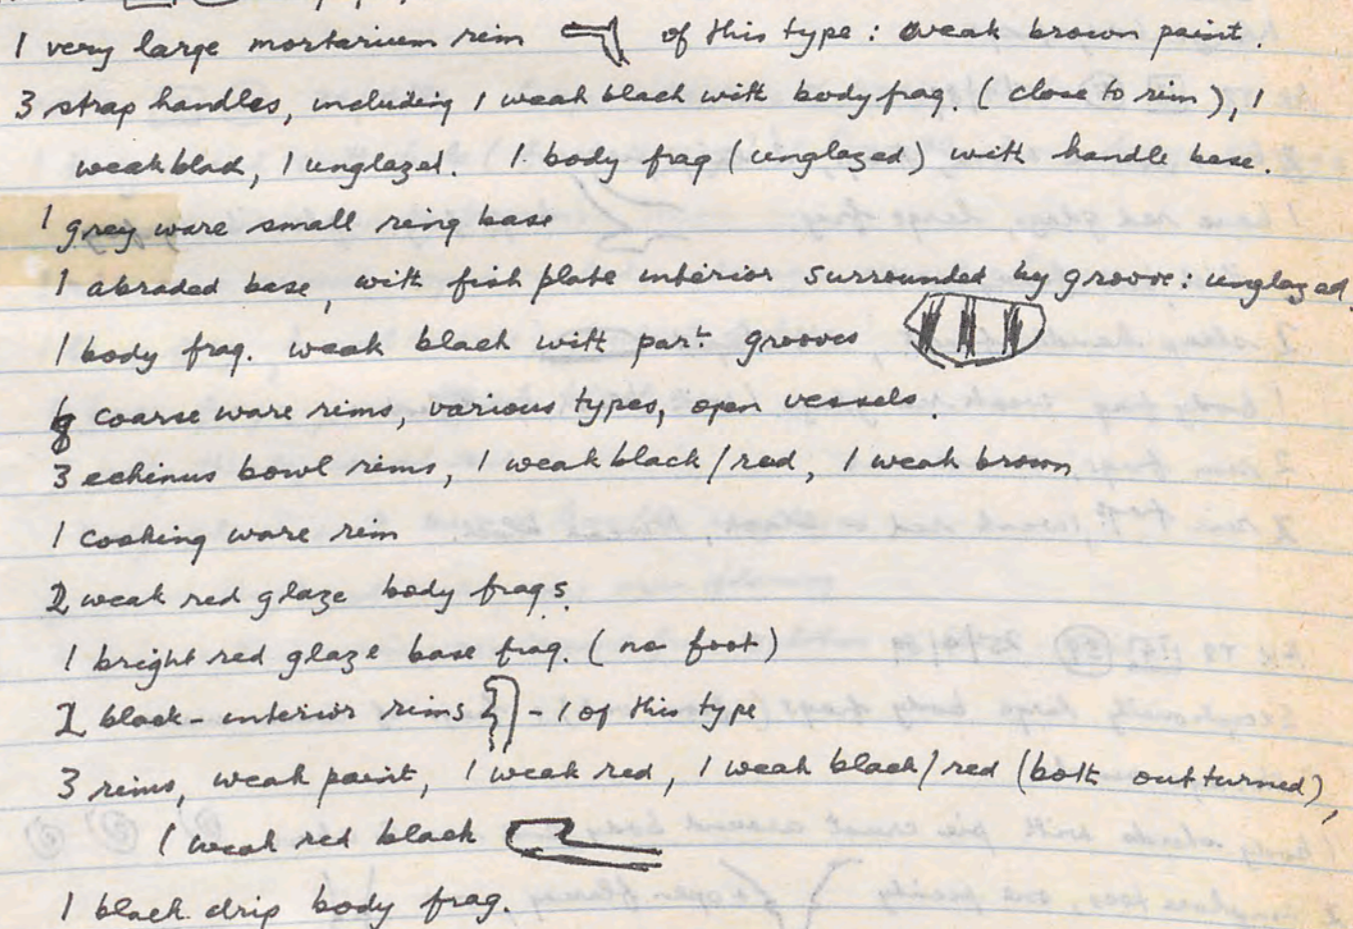 1 very large mortarium rim of this type: weak brown paint.
3 strap handles, including 1 weak black with body frag. (close to rim), 1
weak black, 1 unglazed. 1 body frag (unglazed) with handle base.
1 grey ware small ring base
1 abraded base, with fish plate interior surrounded by groove: unglazed.
1 body frag. weak black with part. grooves
6 coarse ware rims, various types, open vessels.
3 echinus bowl rims, 1 weak black/red, 1 weak brown
1 cooking ware rim
2 weak red glaze body frags.
1 bright red glaze base frag. (no foot)
2 black-interior rims - 1 of this type
3 rims, weak paint, 1 weak red, 1 weak black/red (both outturned),
1 weak red black
1 black drip body frag.